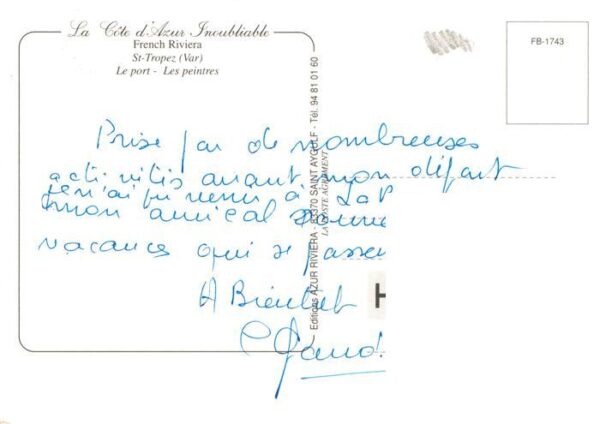 La Côte d'Azur Inoubliable
French Riviera
St-Tropez (Var)
Le port - Les peintres
FB-1743
Prise par de nombreuses
activités avant mon départ
je n'ai pu venir à La P
mon amical
vacances qui se passe
A Bientot H
Editions AZUR RIVIERA - 83370 SAINT AYGULF - Tél. 94 81 01 60
LA POSTE AGREMENT